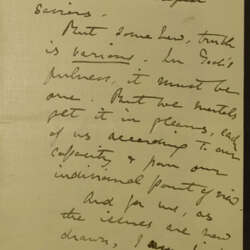 saviors.
But somehow, truth
is various. In God's
fulness, it must be
one. But we mortals
get it in gleams, each
of us according to our
capacity & from our
individual point of view
And for me, as
the issues are now
drawn, I am